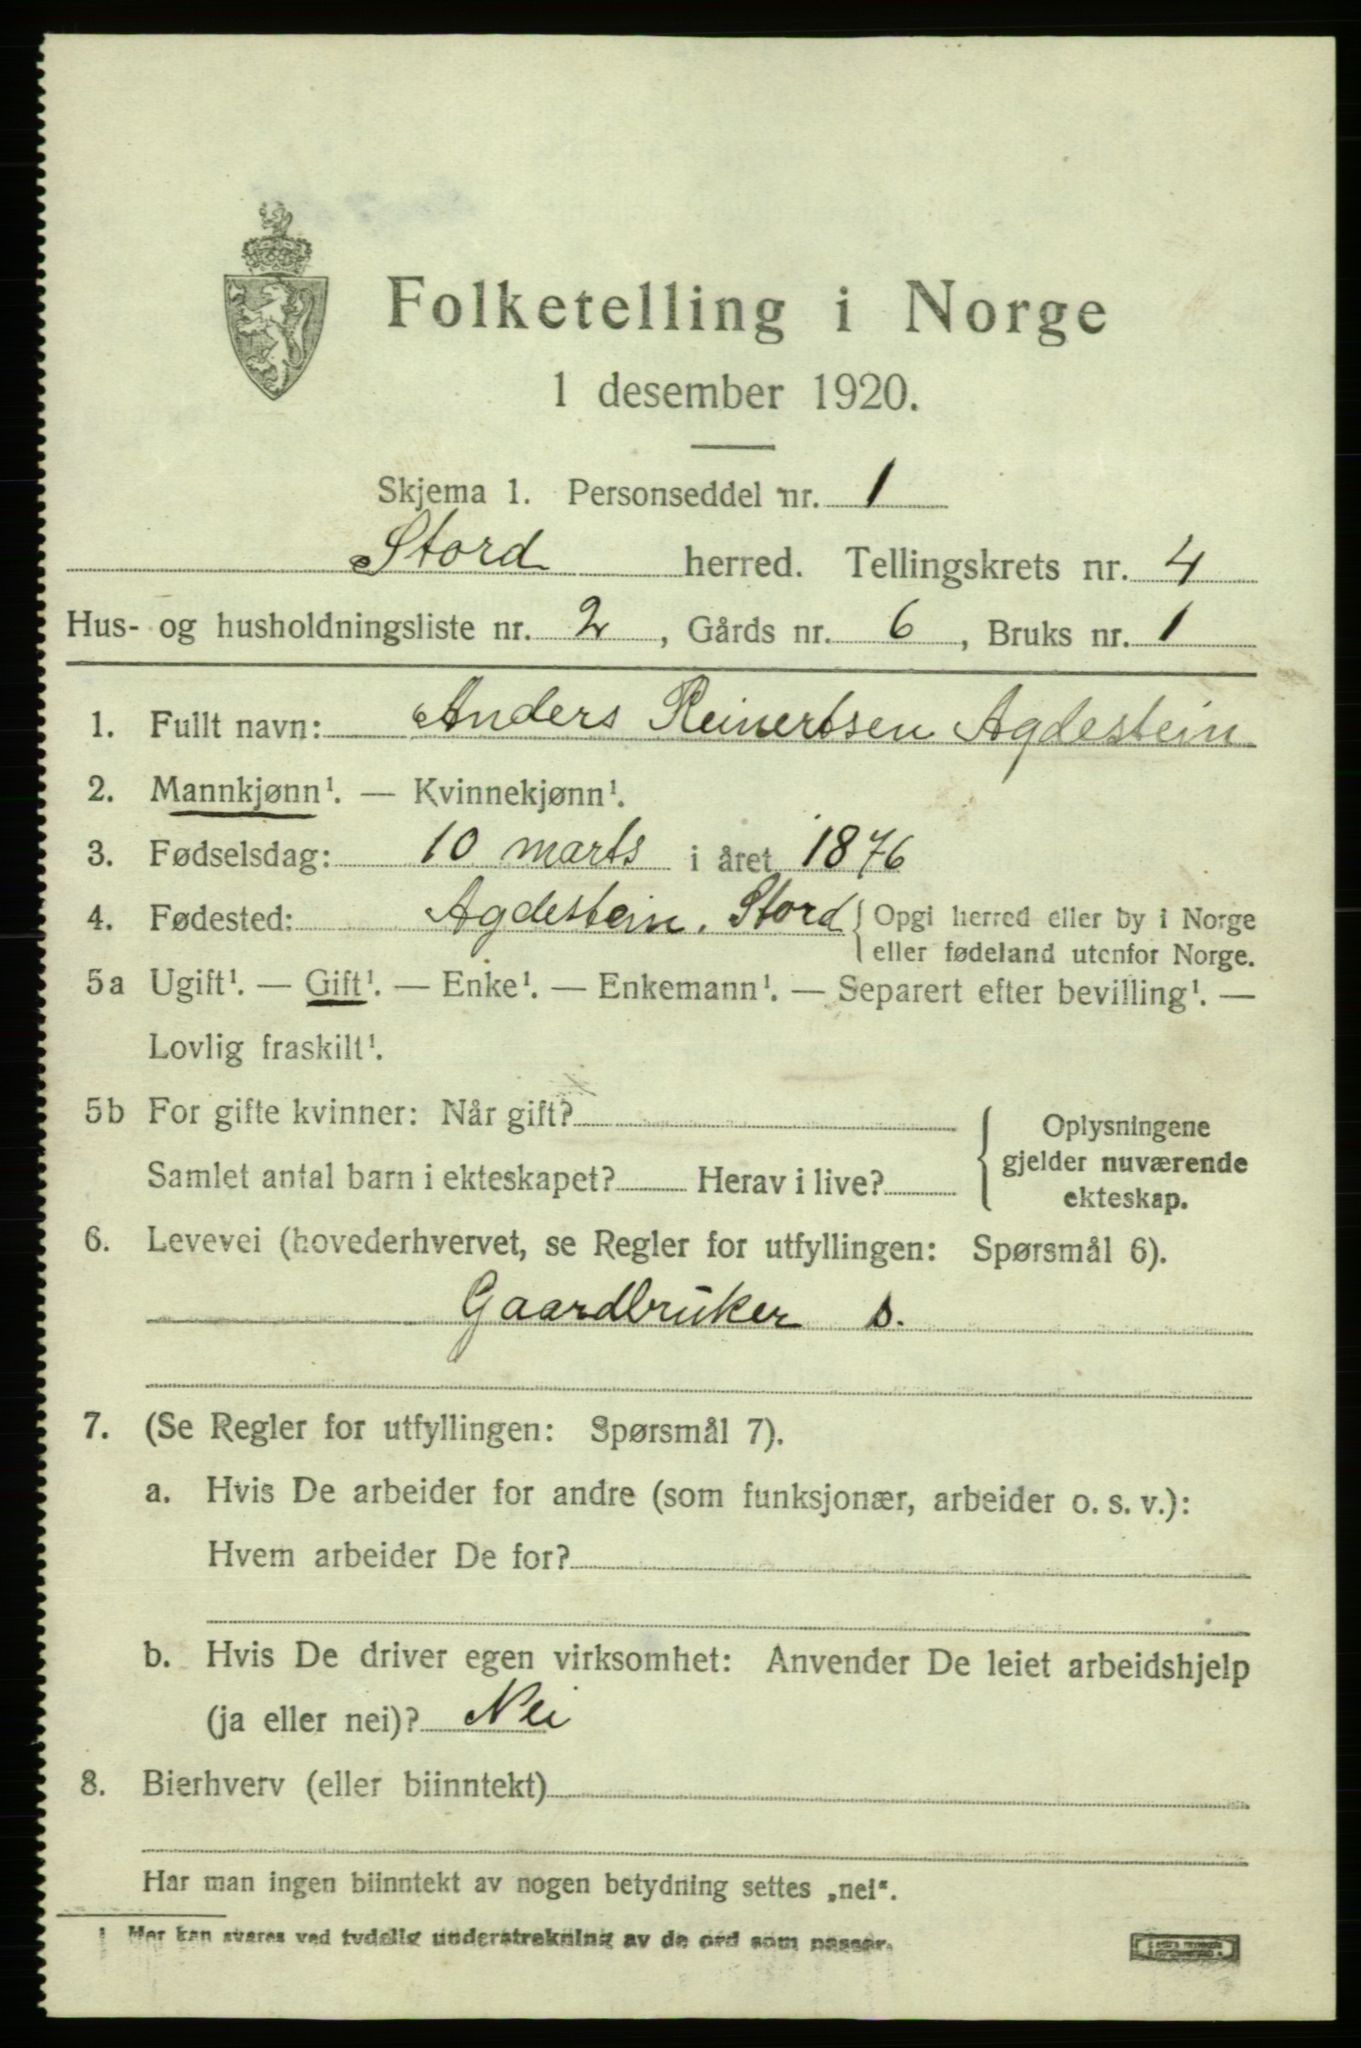 Folketelling i Norge
1 desember 1920.
Skjema 1. Personseddel nr. 1
Stord herred. Tellingskrets nr. 4
Hus- og husholdningsliste nr. 2, Gårds nr. 6, Bruks nr. 1
1. Fullt navn: Anders Reinertsen Agdestein
2. Mannkjønn¹. — Kvinnekjønn¹.
3. Fødselsdag: 10 marts i året 1876
4. Fødested: Agdestein. Stord { Opgi herred eller by i Norge
eller fødeland utenfor Norge.
5a Ugift¹. — Gift¹. — Enke¹. — Enkemann¹. — Separert efter bevilling¹. —
Lovlig fraskilt¹.
5b For gifte kvinner: Når gift?
Samlet antal barn i ekteskapet? Herav i live?
Oplysningene
gjelder nuværende
ekteskap.
6. Levevei (hovederhvervet, se Regler for utfyllingen: Spørsmål 6).
Gaardbruker s.
7. (Se Regler for utfyllingen: Spørsmål 7).
a. Hvis De arbeider for andre (som funksjonær, arbeider o. s. v.):
Hvem arbeider De for?
b. Hvis De driver egen virksomhet: Anvender De leiet arbeidshjelp
(ja eller nei)? Nei
8. Bierhverv (eller biinntekt)
Har man ingen biinntekt av nogen betydning settes „nei“.
¹ Her kan svares ved tydelig understrekning av de ord som passer.